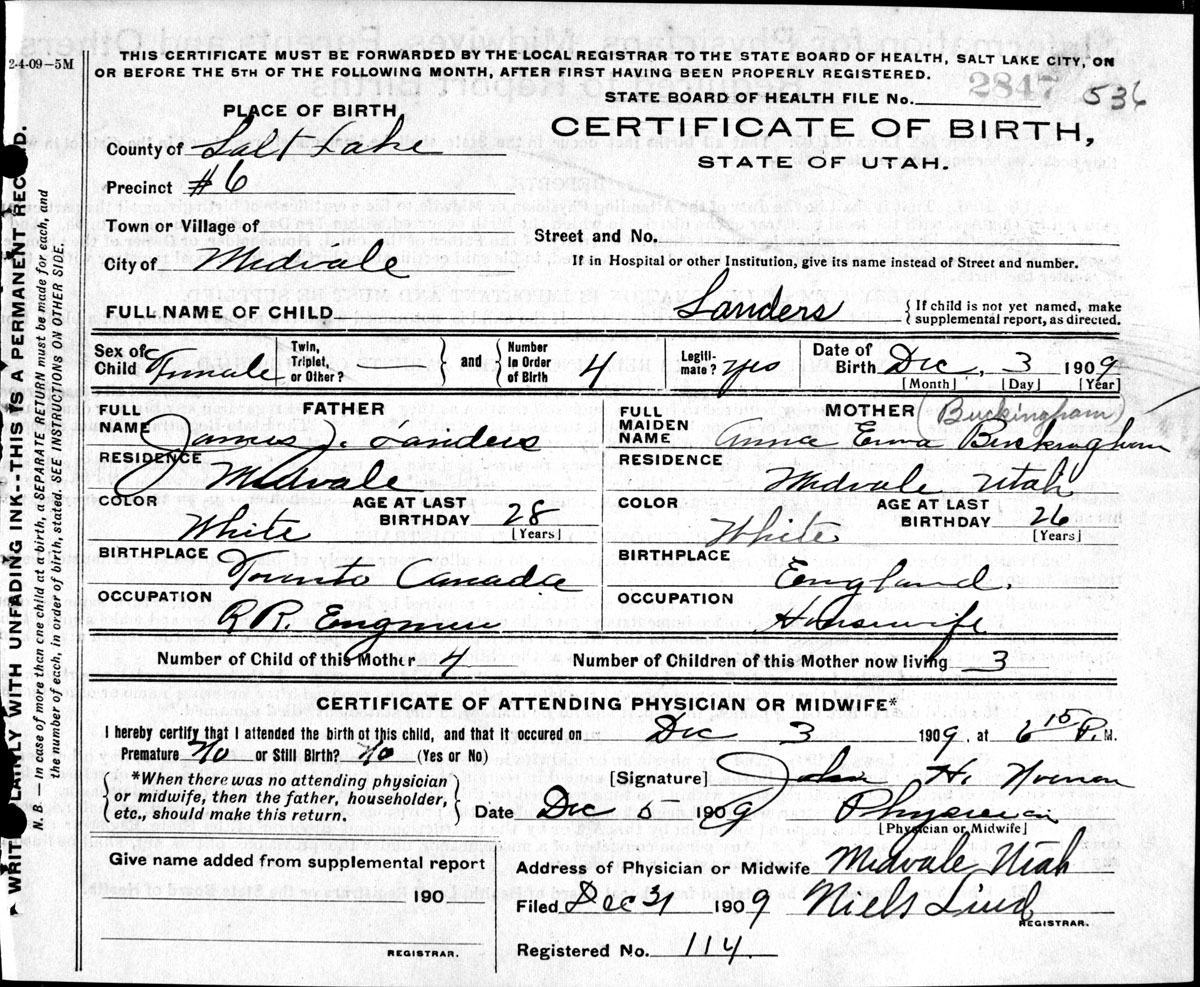 2-4-09-5M
THIS CERTIFICATE MUST BE FORWARDED BY THE LOCAL REGISTRAR TO THE STATE BOARD OF HEALTH, SALT LAKE CITY, ON
OR BEFORE THE 5TH OF THE FOLLOWING MONTH, AFTER FIRST HAVING BEEN PROPERLY REGISTERED.
STATE BOARD OF HEALTH FILE No. 2847 536
PLACE OF BIRTH
CERTIFICATE OF BIRTH,
STATE OF UTAH.
County of Salt Lake
Precinct #6
Town or Village of
Street and No.
City of Midvale
If in Hospital or other Institution, give its name instead of Street and number.
FULL NAME OF CHILD Sanders { If child is not yet named, make supplemental report, as directed.
Sex of Child Female Twin, Triplet, or Other? } and { Number in Order of Birth 4 Legiti- mate? yes Date of Birth Dec, 3 1909
[Month] [Day] [Year]
FULL NAME FATHER
James J. Sanders
FULL MAIDEN NAME MOTHER (Buckingham)
Anna Emma Buckingham
RESIDENCE Midvale
RESIDENCE Midvale Utah
COLOR White AGE AT LAST BIRTHDAY 28 [Years]
COLOR White AGE AT LAST BIRTHDAY 26 [Years]
BIRTHPLACE Toronto Canada
BIRTHPLACE England.
OCCUPATION R.R. Engineer
OCCUPATION Housewife
Number of Child of this Mother 4 Number of Children of this Mother now living 3
CERTIFICATE OF ATTENDING PHYSICIAN OR MIDWIFE*
I hereby certify that I attended the birth of this child, and that it occured on Dec 3 1909, at 6 15 P. M.
Premature No or Still Birth? No (Yes or No)
*When there was no attending physician
or midwife, then the father, householder,
etc., should make this return.
[Signature] John H.
Date Dec 5 1909 Physician
[Physician or Midwife]
Give name added from supplemental report
190
REGISTRAR.
Address of Physician or Midwife Midvale Utah
Filed Dec 31 1909 Niels Lind
REGISTRAR.
Registered No. 114
WRITE PLAINLY WITH UNFADING INK--THIS IS A PERMANENT RECORD.
N. B. — In case of more than one child at a birth, a SEPARATE RETURN must be made for each, and
the number of each, in order of birth, stated. SEE INSTRUCTIONS ON OTHER SIDE.